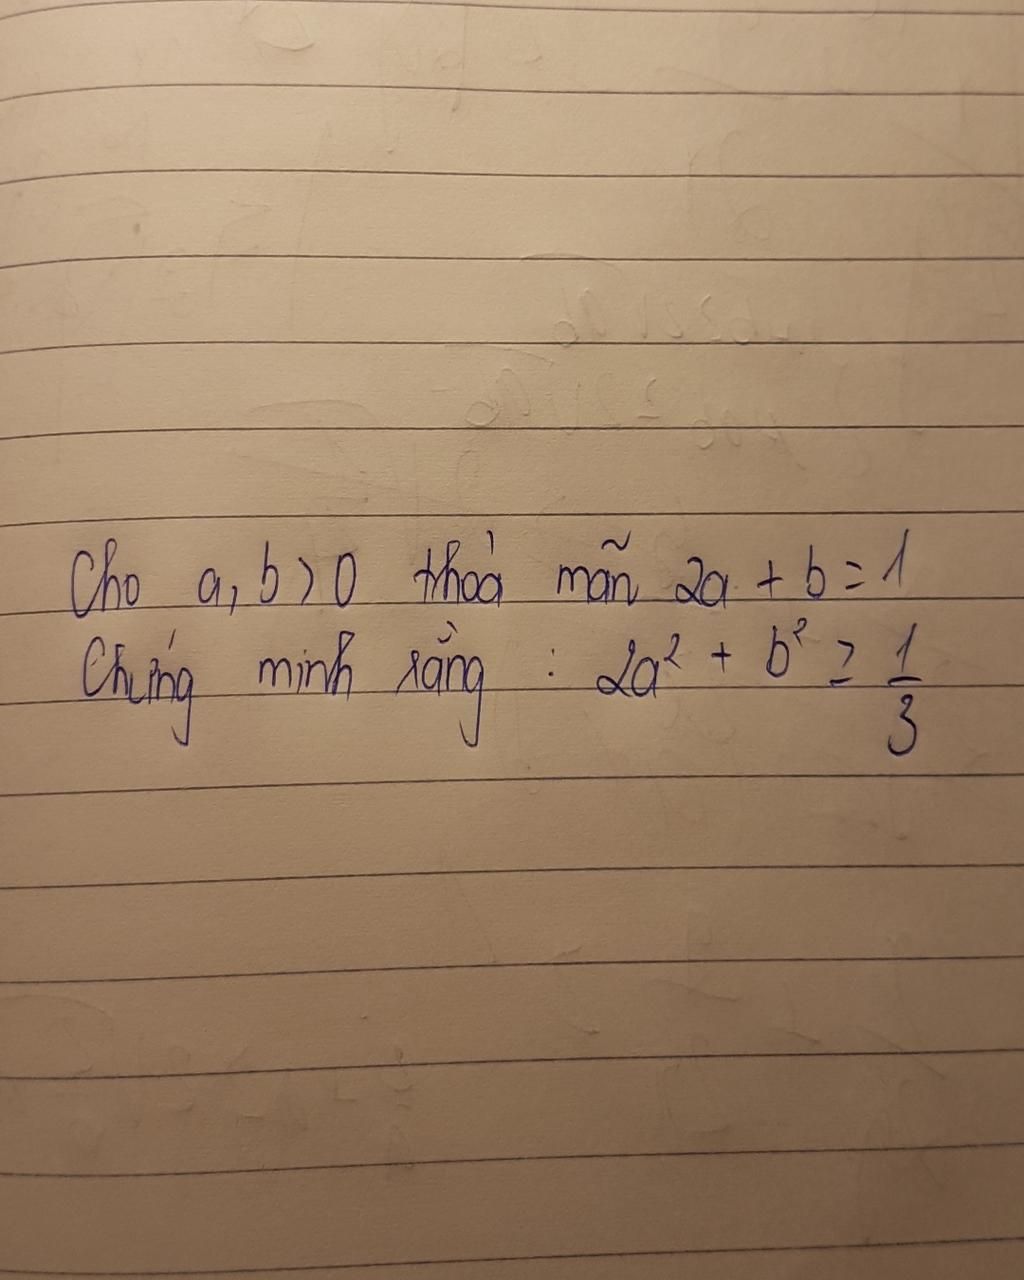 Cho a, b > 0 thoả mãn 2a + b = 1
Chứng minh rằng : 2a² + b² ≥ 1/3